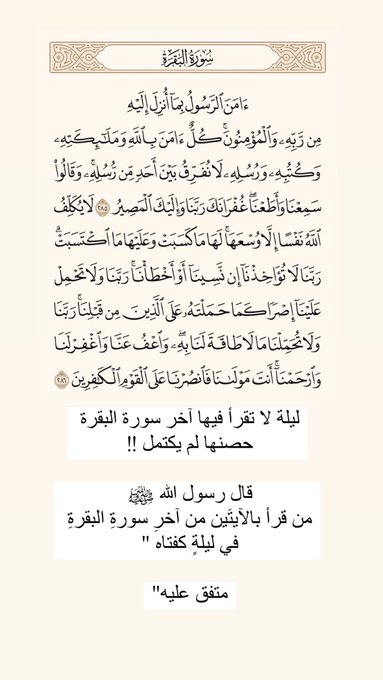 سُورَةُ البَقَرَةِ
ءَامَنَ ٱلرَّسُولُ بِمَآ أُنزِلَ إِلَيْهِ
مِن رَّبِّهِۦ وَٱلْمُؤْمِنُونَۚ كُلٌّ ءَامَنَ بِٱللَّهِ وَمَلَـٰٓئِكَتِهِۦ
وَكُتُبِهِۦ وَرُسُلِهِۦ لَا نُفَرِّقُ بَيْنَ أَحَدٍ مِّن رُّسُلِهِۦۚ وَقَالُوا۟
سَمِعْنَا وَأَطَعْنَاۖ غُفْرَانَكَ رَبَّنَا وَإِلَيْكَ ٱلْمَصِيرُ ٢٨٥ لَا يُكَلِّفُ
ٱللَّهُ نَفْسًا إِلَّا وُسْعَهَاۚ لَهَا مَا كَسَبَتْ وَعَلَيْهَا مَا ٱكْتَسَبَتْۗ
رَبَّنَا لَا تُؤَاخِذْنَآ إِن نَّسِينَآ أَوْ أَخْطَأْنَاۚ رَبَّنَا وَلَا تَحْمِلْ
عَلَيْنَآ إِصْرًا كَمَا حَمَلْتَهُۥ عَلَى ٱلَّذِينَ مِن قَبْلِنَاۚ رَبَّنَا
وَلَا تُحَمِّلْنَا مَا لَا طَاقَةَ لَنَا بِهِۦۖ وَٱعْفُ عَنَّا وَٱغْفِرْ لَنَا
وَٱرْحَمْنَآۚ أَنتَ مَوْلَىٰنَا فَٱنصُرْنَا عَلَى ٱلْقَوْمِ ٱلْكَـٰفِرِينَ ٢٨٦
ليلة لا تقرأ فيها آخر سورة البقرة
حصنها لم يكتمل !!
قال رسول الله ﷺ
من قرأ بالآيتَين من آخرِ سورةِ البقرةِ
في ليلةٍ كفتاه "
متفق عليه"